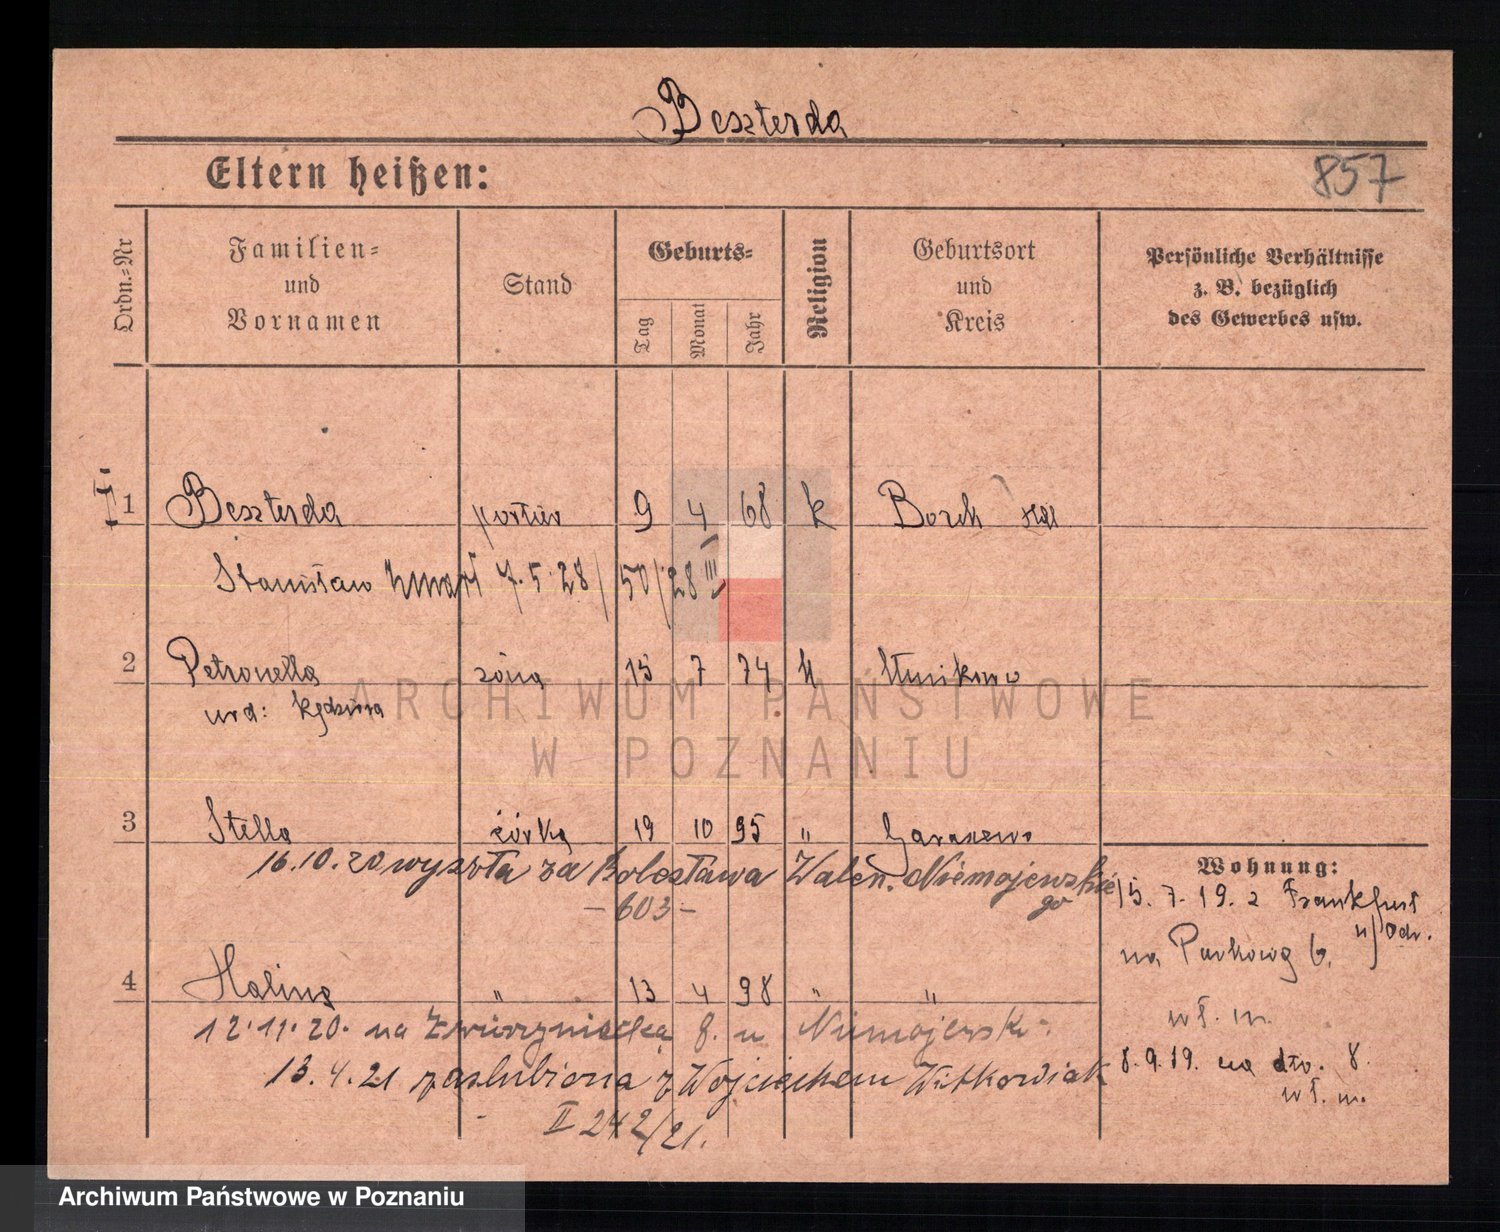 Beszterda
Eltern heißen:
857
Ordn.=Nr
Familien=
und
Vornamen
Stand
Geburts=
Tag
Monat
Jahr
Religion
Geburtsort
und
Kreis
Persönliche Verhältnisse
z. B. bezüglich
des Gewerbes usw.
1 Beszterda portier 9 4 68 k Borek
Stanisław zmarł 7.5.28 / 50/28 III
2 Petronella żona 15 7 74 k
urd: Kędziora
3 Stella córka 19 10 95 " Garaszewo
16.10.20 wyszła za Bolesława Walen. Niemojewskie
go
- 603 -
Wohnung:
15.7.19. z Frankfurt
n/Odr.
na Parkową 6.
4 Halina " 13 4 98 " "
wł. m.
12.11.20. na Zwierzyniecką 8. u Niemojewsk.
8.9.19. na dtv. 8.
wł. m.
13.4.21 zaślubiona z Wojciechem Witkowiak
II 242/21.
ARCHIWUM PAŃSTWOWE
W POZNANIU
Archiwum Państwowe w Poznaniu